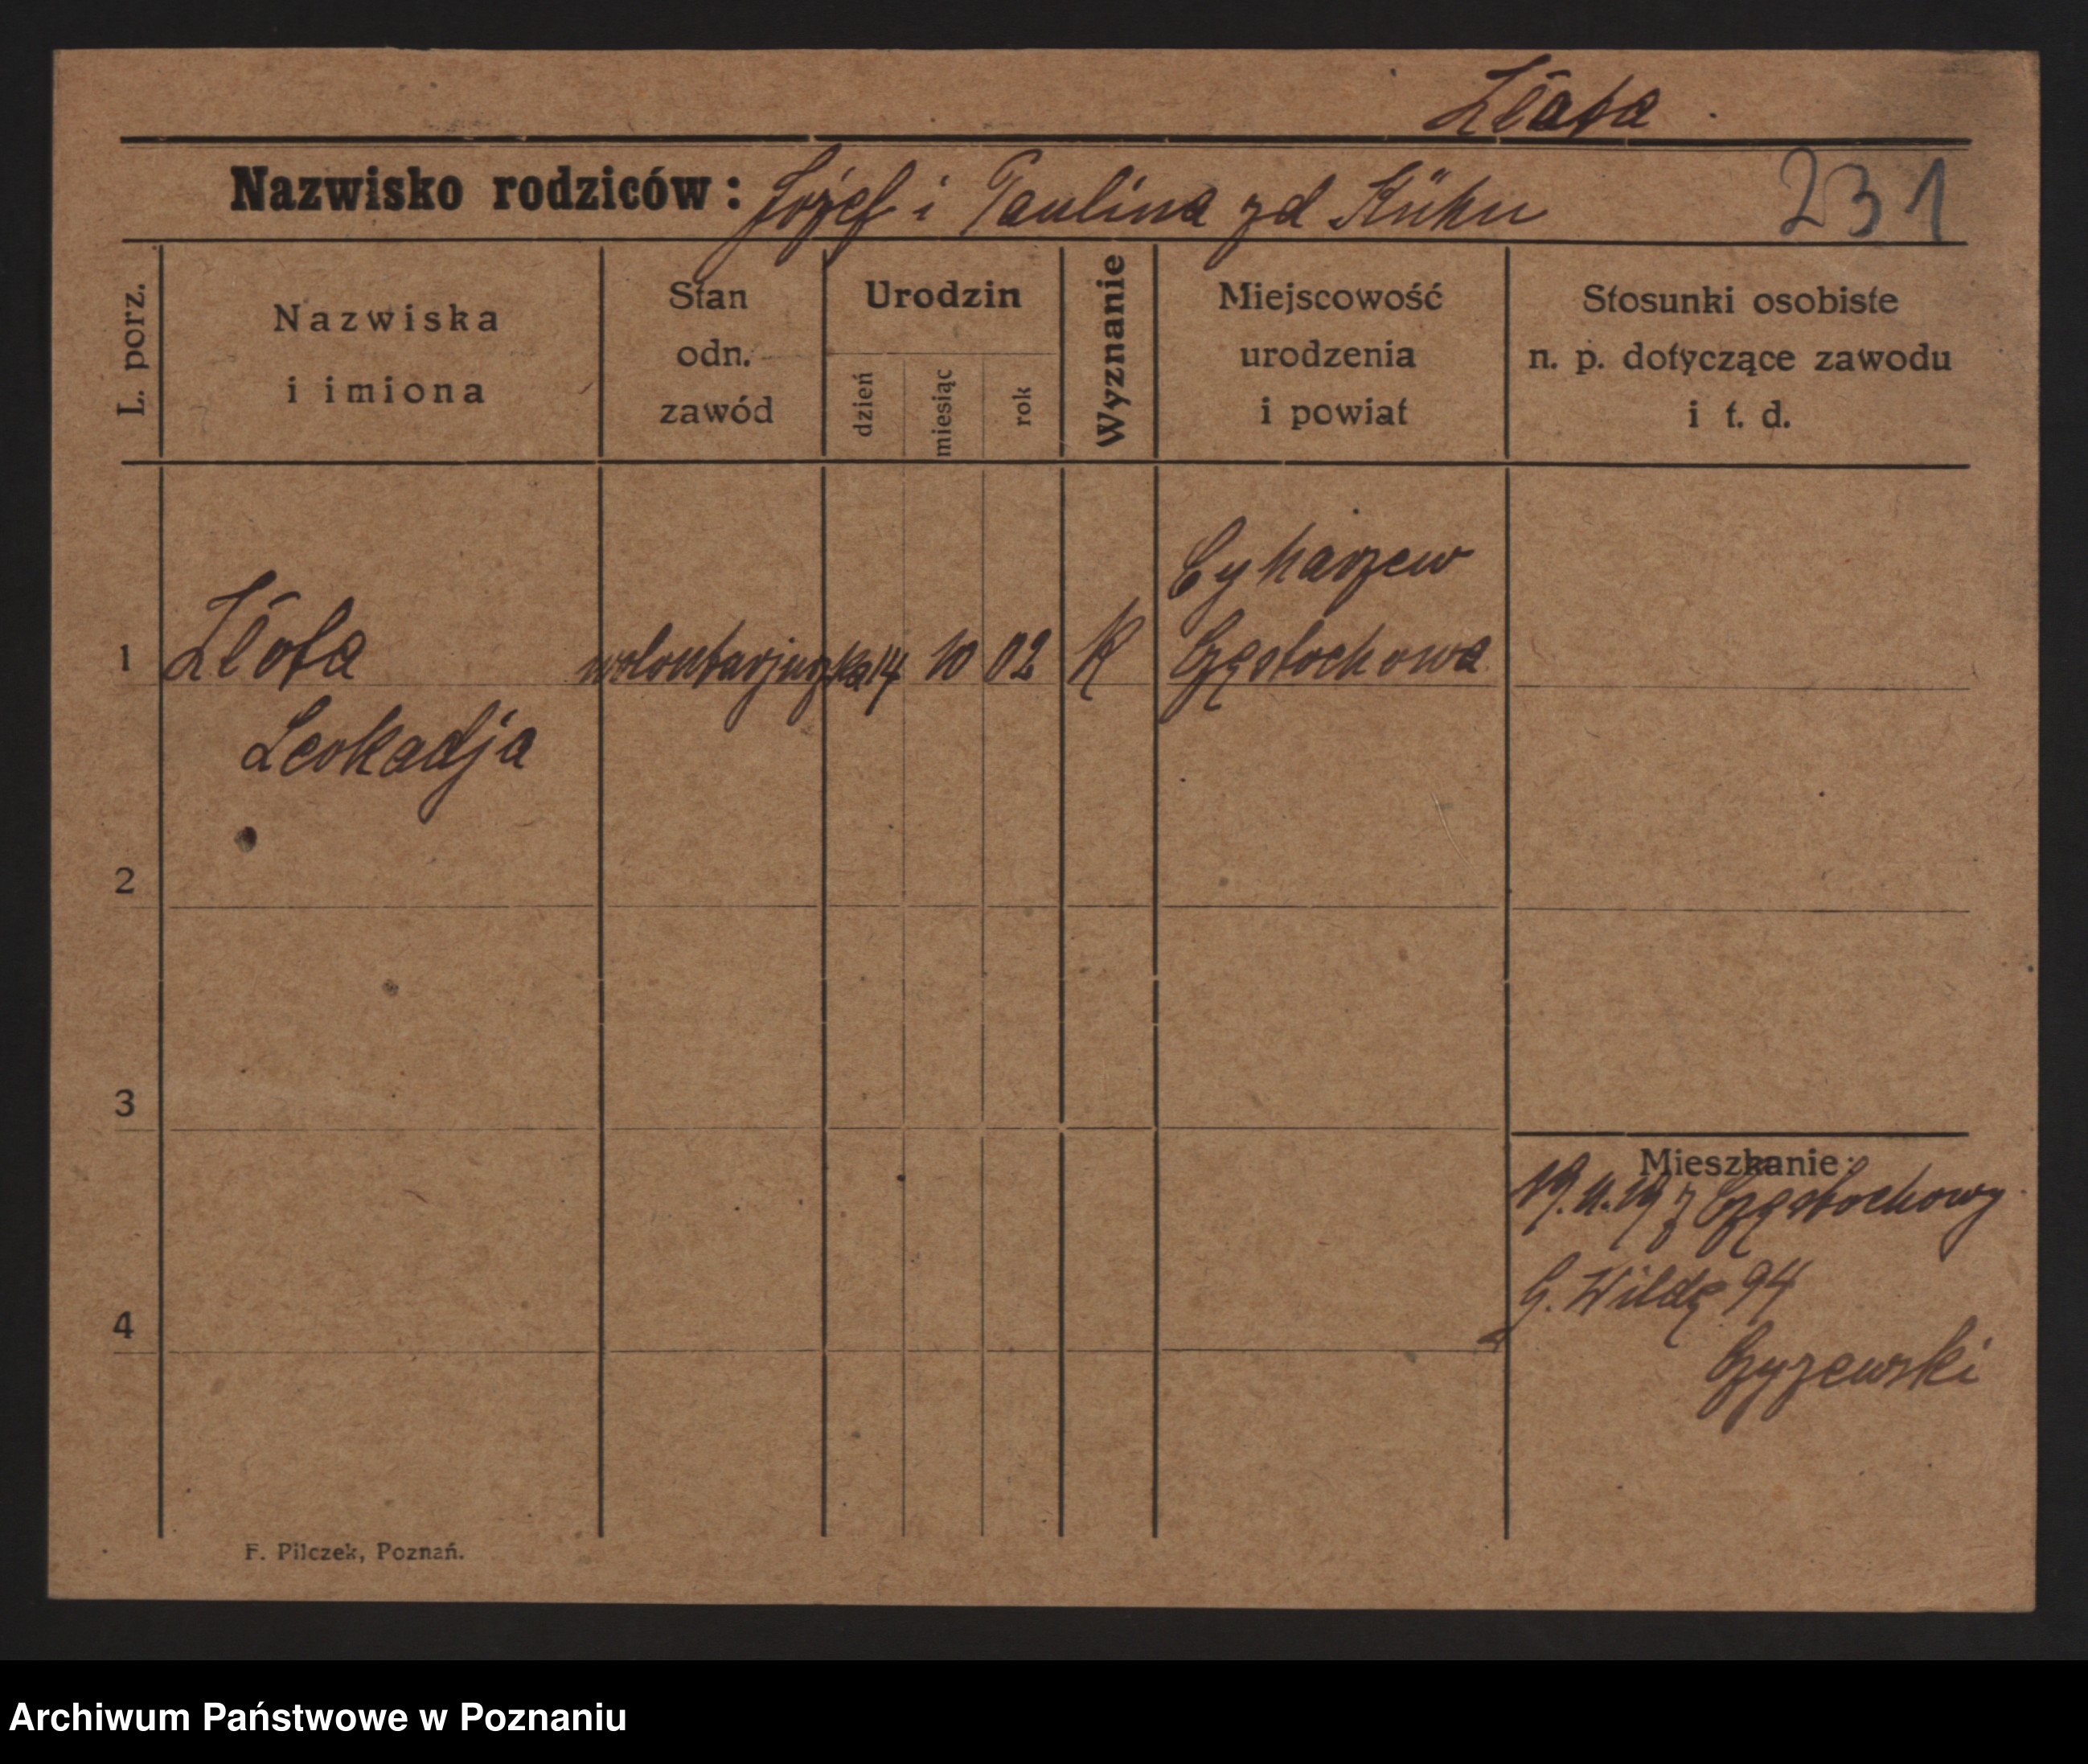 Złota
Nazwisko rodziców: Józef i Paulina zd Kühn
231
L. porz.
Nazwiska
i imiona
Stan
odn.
zawód
Urodzin
dzień
miesiąc
rok
Wyznanie
Miejscowość
urodzenia
i powiat
Stosunki osobiste
n. p. dotyczące zawodu
i t. d.
Cykarzew
1 Złota wolontarjuszka 14 10 02 K Częstochowa
Leokadja
2
3
4
Mieszkanie:
19.11.19 z Częstochowy
G. Wildę 94
Czyżewski
F. Pilczek, Poznań.
Archiwum Państwowe w Poznaniu